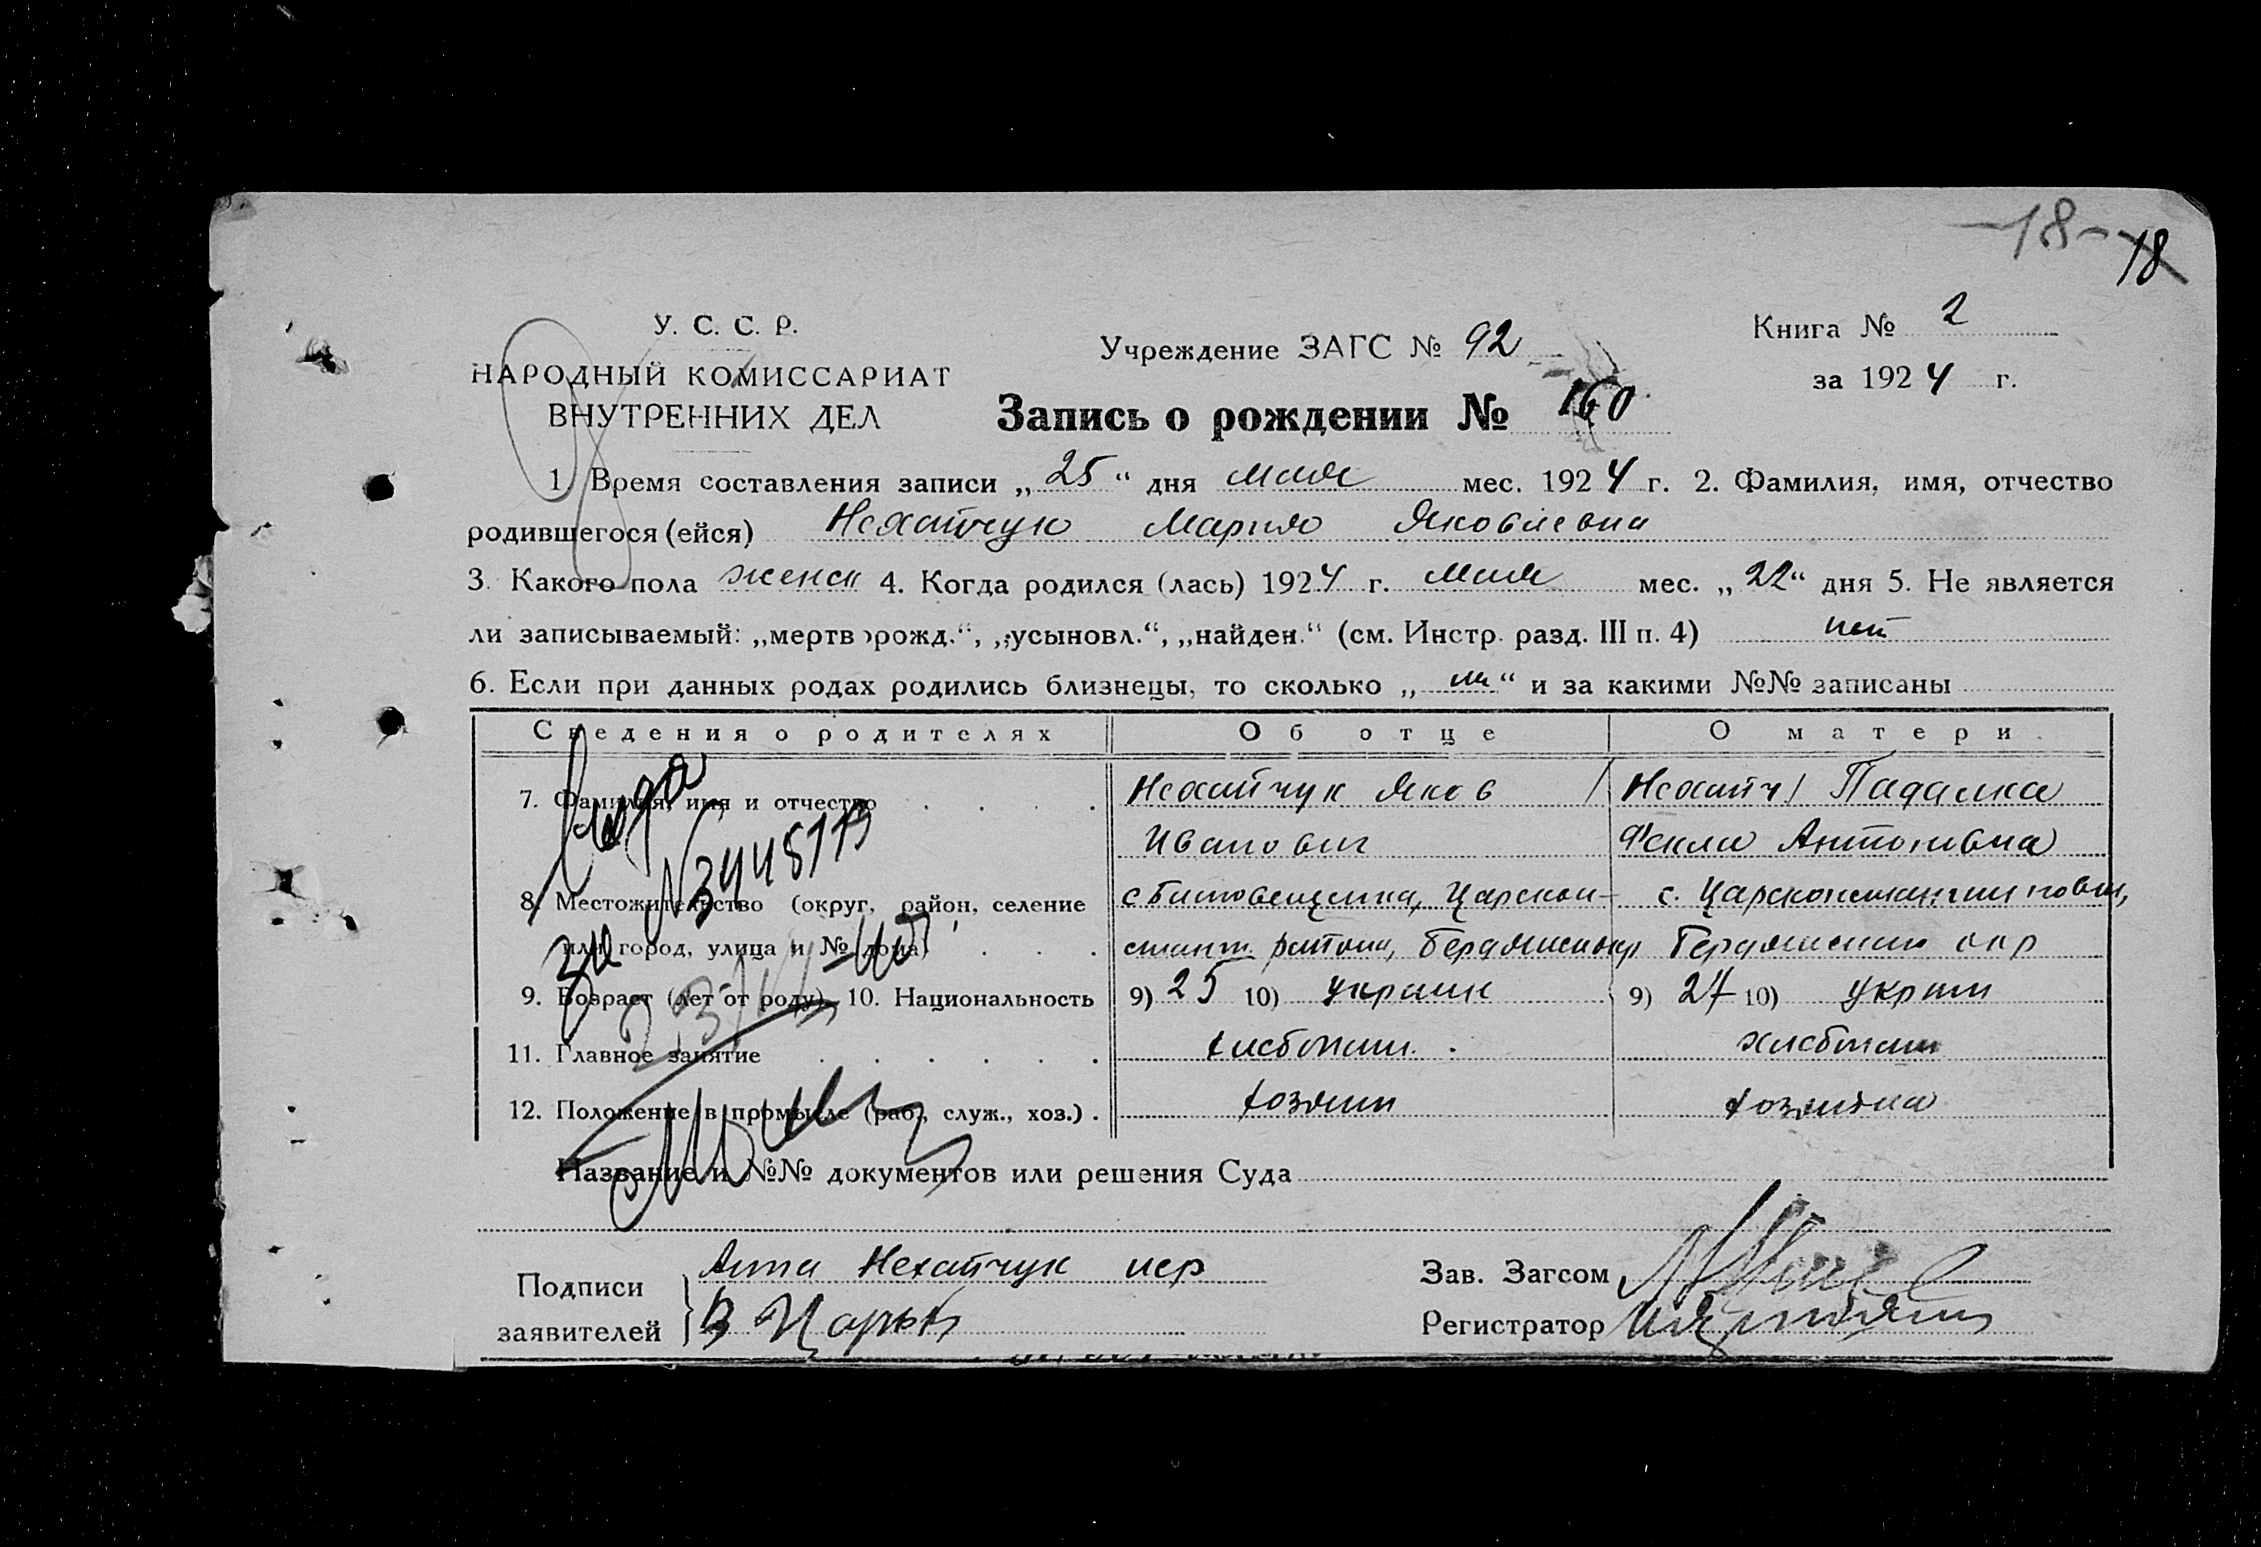 -18- 18
У. С. С. Р.
НАРОДНЫЙ КОМИССАРИАТ
ВНУТРЕННИХ ДЕЛ
Учреждение ЗАГС № 92
Запись о рождении № 160
Книга № 2
за 1924 г.
1. Время составления записи „25“ дня мая мес. 1924 г. 2. Фамилия, имя, отчество
родившегося (ейся) Нехайчук Мария Яковлевна
3. Какого пола женск 4. Когда родился (лась) 1924 г. мая мес. „22“ дня 5. Не является
ли записываемый: „мертворожд.“, „усыновл.“, „найден.“ (см. Инстр. разд. III п. 4) нет
6. Если при данных родах родились близнецы, то сколько „ “ и за какими №№ записаны
Сведения о родителях Об отце О матери
7. Фамилия, имя и отчество Нехайчук Яков / Нехайч/ Падалка
Иванович Фекла Антоновна
8. Местожительство (округ, район, селение
или город, улица и № дома) района,
9. Возраст (лет от роду) 10. Национальность 9) 25 10) украин 9) 27 10) украин
11. Главное занятие хлебопаш. хлебопаш
12. Положение в промысле (раб., служ., хоз.) хозяин хозяйка
Название и №№ документов или решения Суда
Подписи
заявителей
Анна Нехайчук
Зав. Загсом
Регистратор